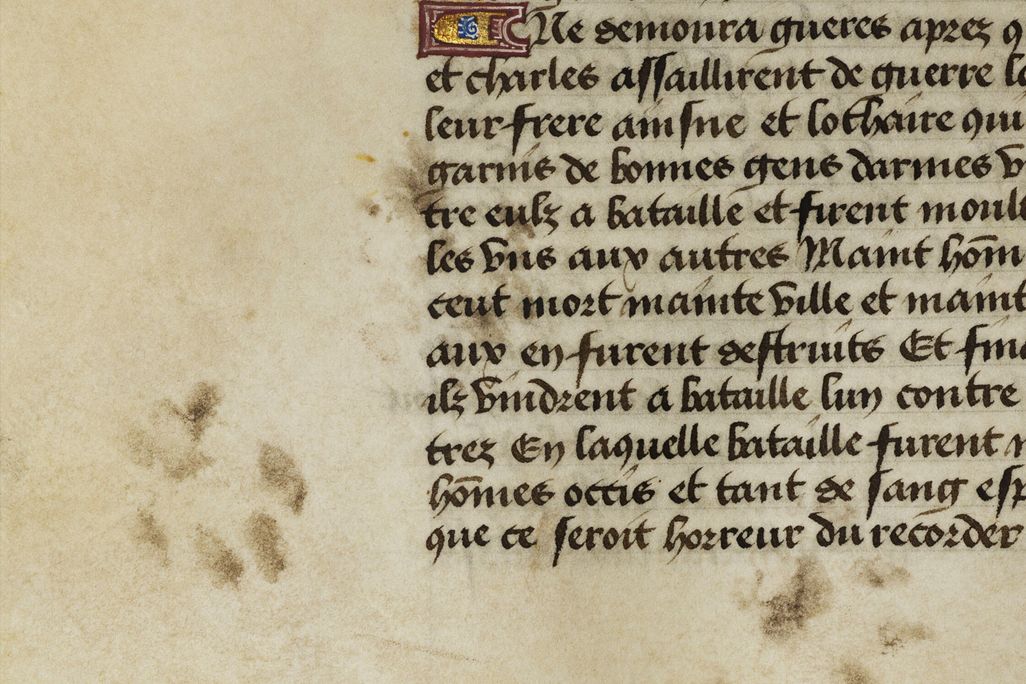 Ne demoura gueres aprez q
et charles assaillirent de guerre
leur frere ainsne et lothaire qui
garnis de bonnes gens darmes
tre eulz a bataille et firent
les vns aux autres Maint hōm
ceut mort mainte ville et maint
aux en furent destruits Et
ilz vindrent a bataille lun contre
trez En laquelle bataille furent
hōmes occis et tant de sang
que ce seroit horreur du recorder